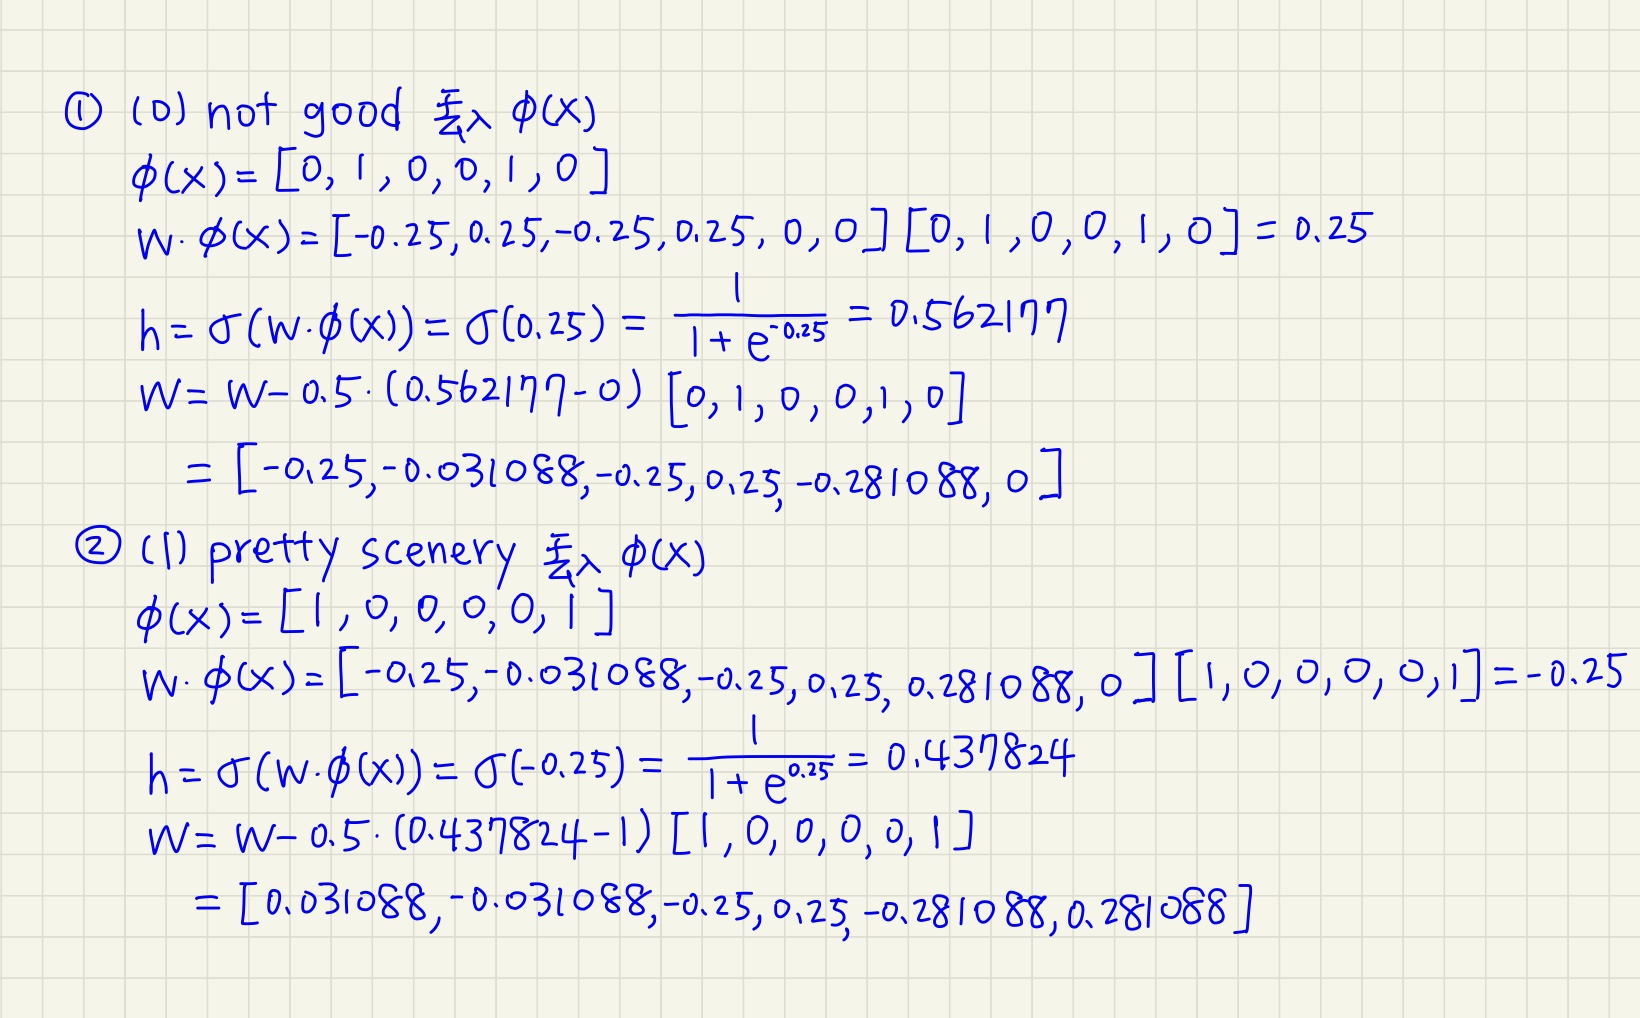 ① (0) not good 丟入 φ(x)
φ(x) = [0, 1, 0, 0, 1, 0]
W·φ(x) = [-0.25, 0.25, -0.25, 0.25, 0, 0] [0, 1, 0, 0, 1, 0] = 0.25
h = σ(W·φ(x)) = σ(0.25) = 1/(1+e^-0.25) = 0.562177
W = W - 0.5·(0.562177-0) [0, 1, 0, 0, 1, 0]
= [-0.25, -0.031088, -0.25, 0.25, -0.281088, 0]
② (1) pretty scenery 丟入 φ(x)
φ(x) = [1, 0, 0, 0, 0, 1]
W·φ(x) = [-0.25, -0.031088, -0.25, 0.25, 0.281088, 0] [1, 0, 0, 0, 0, 1] = -0.25
h = σ(W·φ(x)) = σ(-0.25) = 1/(1+e^0.25) = 0.437824
W = W - 0.5·(0.437824-1) [1, 0, 0, 0, 0, 1]
= [0.031088, -0.031088, -0.25, 0.25, -0.281088, 0.281088]